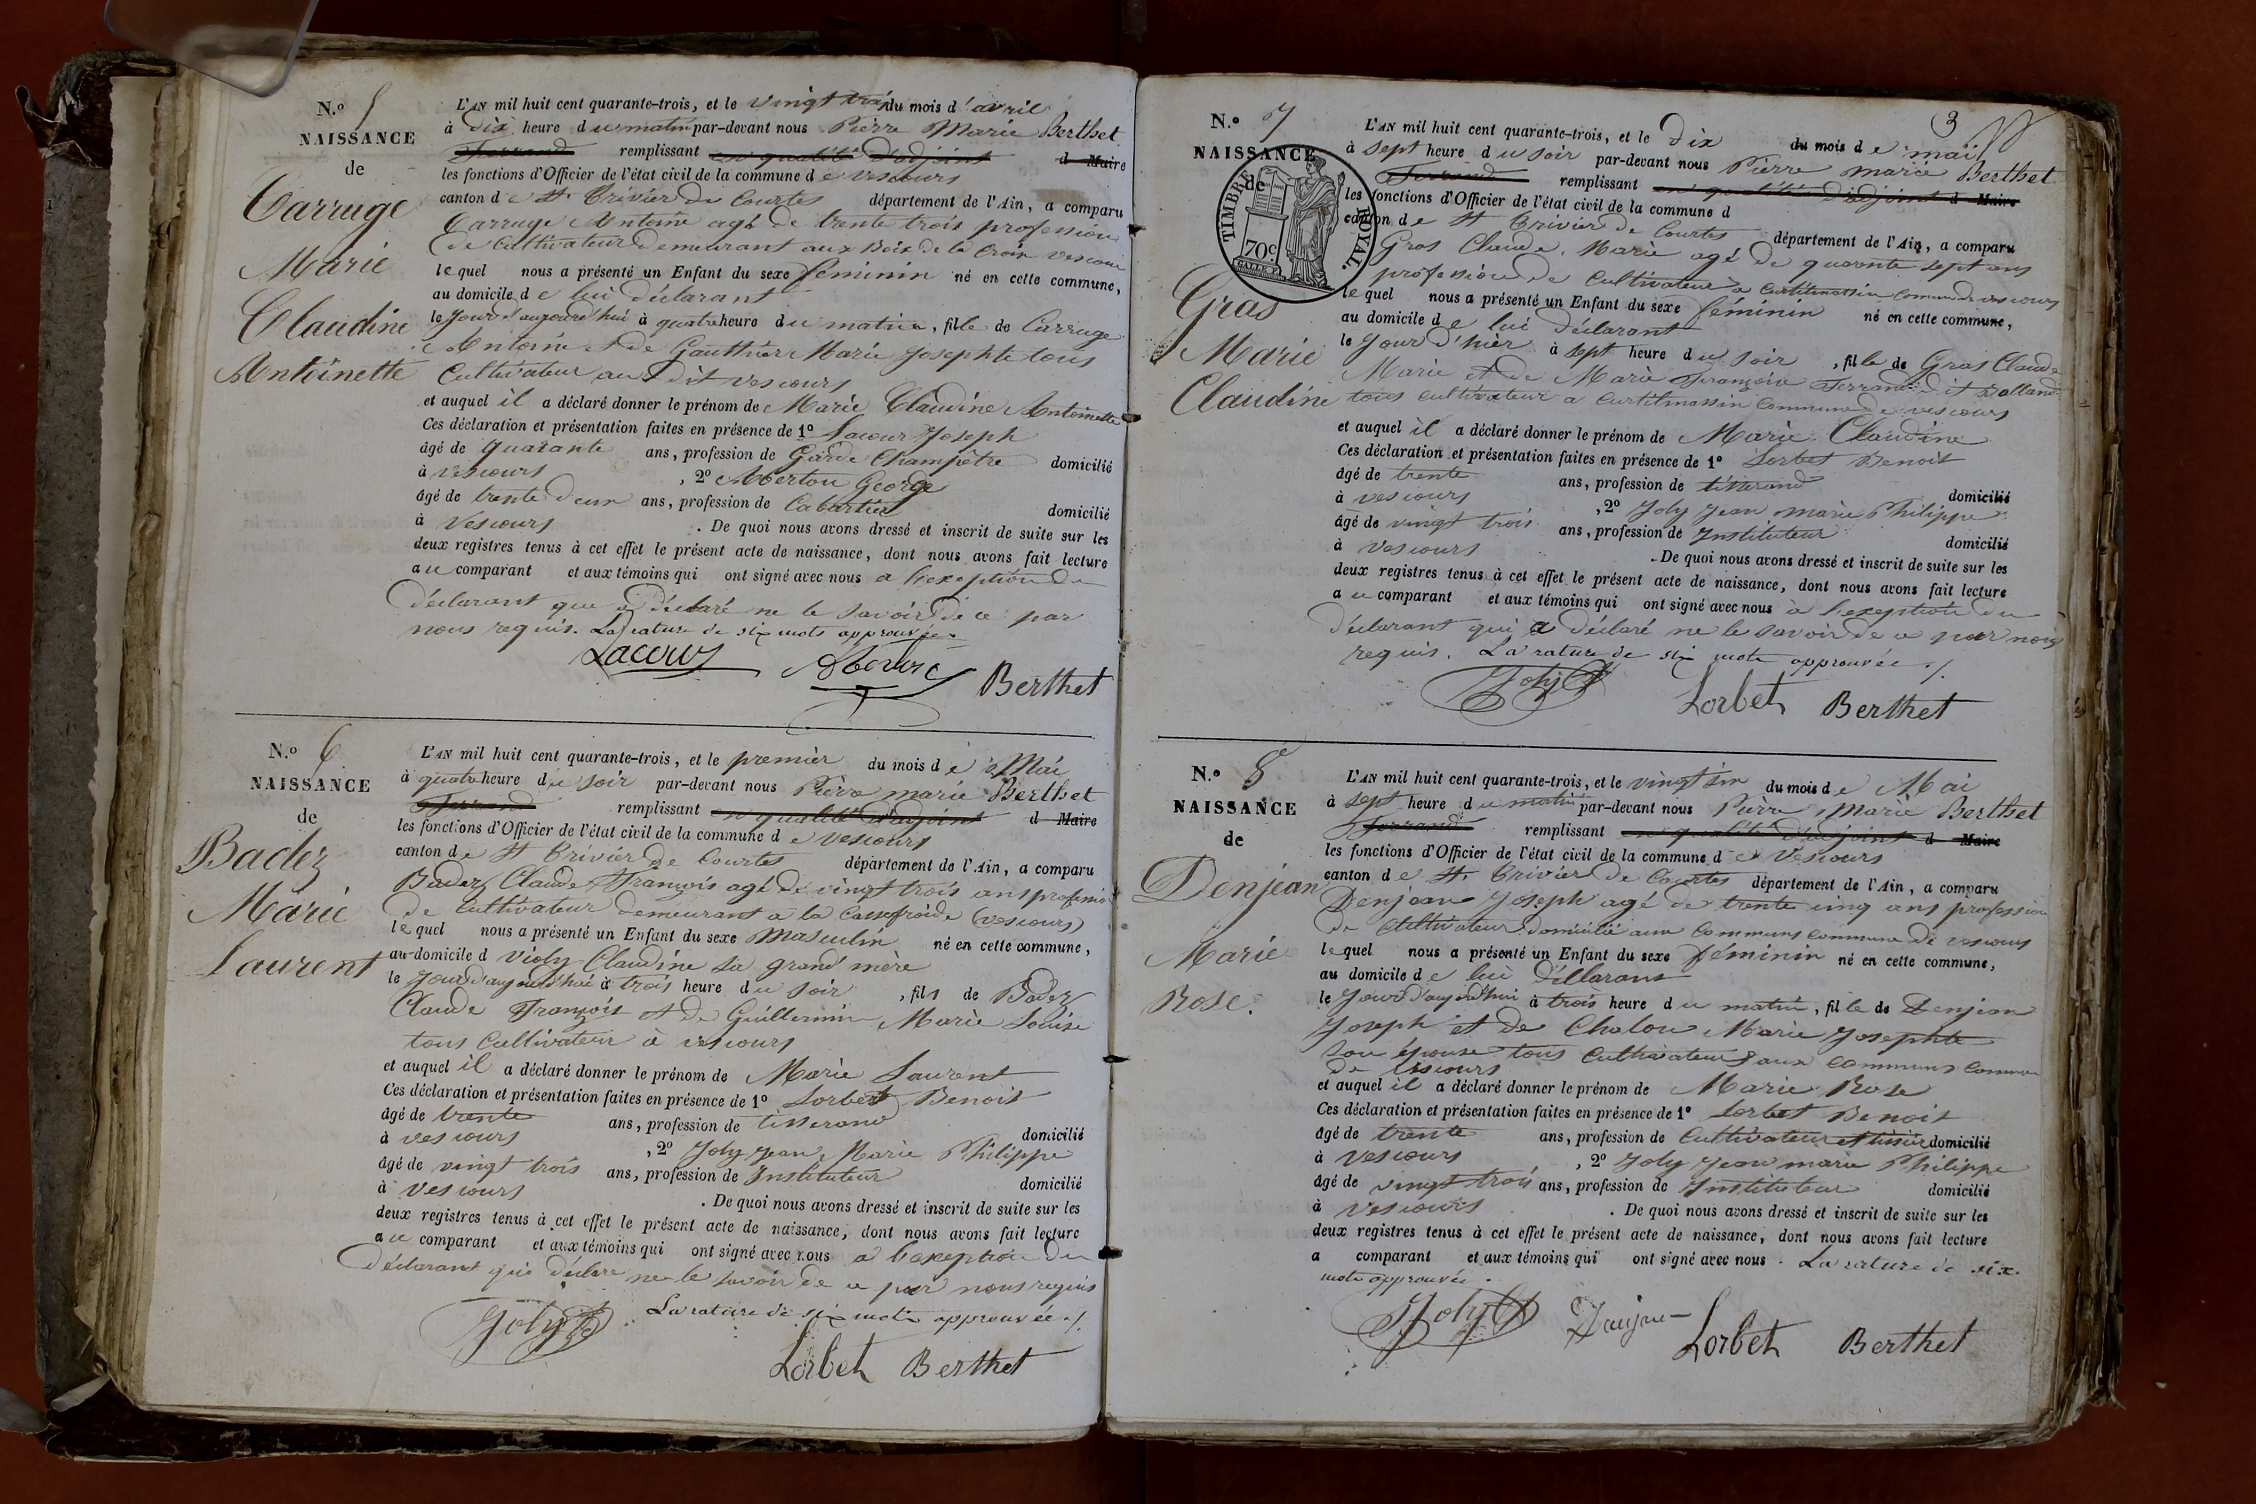 N.o 5
NAISSANCE
de
Carruge
Marie
Claudine
Antoinette
L'AN mil huit cent quarante-trois, et le vingt trois du mois d'avril
à dix heure du matin par-devant nous Pierre Marie Berthet
Ferrand remplissant en qualité d'adjoint d Maire
les fonctions d'Officier de l'état civil de la commune de vescours
canton de St Trivier de Courtes département de l'Ain, a comparu
Carruge Antoine agé de trente trois profession
de Cultivateur demeurant aux Bois de la Croix vescours
lequel nous a présenté un Enfant du sexe féminin né en cette commune,
au domicile de lui déclarant
le jour d'aujourd'hui à quatre heure du matin, fille de Carruge
Antoine et de Gauthier Marie Josephte tous
Cultivateur au dit vescours
et auquel il a déclaré donner le prénom de Marie Claudine Antoinette
Ces déclaration et présentation faites en présence de 1o Lacour Joseph
âgé de quarante ans, profession de Garde Champêtre domicilié
à vescours , 2o George
âgé de trente deux ans, profession de Cabartier domicilié
à Vescours . De quoi nous avons dressé et inscrit de suite sur les
deux registres tenus à cet effet le présent acte de naissance, dont nous avons fait lecture
au comparant et aux témoins qui ont signé avec nous a l'exeption du
déclarant que a déclaré ne le savoir de ce par
nous requis. La rature de six mots approuvée.
Lacour Berthet
N.o 6
NAISSANCE
de
Badez
Marie
Laurent
L'AN mil huit cent quarante-trois, et le premier du mois de Mai
à quatre heure du soir par-devant nous Pierre marie Berthet
Ferrand remplissant en qualité d'adjoint d Maire
les fonctions d'Officier de l'état civil de la commune de vescours
canton de St Trivier de Courtes département de l'Ain, a comparu
Badez Claude François agé de vingt trois ans profession
de cultivateur demeurant a la Cassefroide (vescours)
lequel nous a présenté un Enfant du sexe masculin né en cette commune,
au domicile d Violy Claudine sa grand mère
le jour d'aujourd'hui à trois heure du soir , fils de Badez
Claude François et de Guillermin Marie Louise
tous Cultivateur à vescours
et auquel il a déclaré donner le prénom de Marie Laurent
Ces déclaration et présentation faites en présence de 1o Lorbet Benoit
âgé de trente ans, profession de tisserand
à vescours domicilié
, 2o Joly Jean Marie Philippe
âgé de vingt trois ans, profession de Instituteur
à vescours domicilié
. De quoi nous avons dressé et inscrit de suite sur les
deux registres tenus à cet effet le présent acte de naissance, dont nous avons fait lecture
au comparant et aux témoins qui ont signé avec nous a l'exeption du
déclarant qui a déclare ne le savoir de ce par nous requis
La rature de six mots approuvée ./.
Joly Lorbet Berthet
3
N.o 7
NAISSANCE
de
TIMBRE ROYAL.
70c
Gras
Marie
Claudine
L'AN mil huit cent quarante-trois, et le dix du mois de mai
à sept heure du soir par-devant nous Pierre marie Berthet
Ferrand remplissant en qualité d'adjoint d Maire
les fonctions d'Officier de l'état civil de la commune d
canton de St Trivier de Courtes département de l'Ain, a comparu
Gras Claude Marie agé de quarante sept ans
profession de cultivateur à Curtilmassin commune de vescours
lequel nous a présenté un Enfant du sexe féminin né en cette commune,
au domicile de lui déclarant
le Jour d'hier à sept heure du soir , fille de Gras Claude
Marie et de Marie Françoise Ferrand dit Rolland
tous cultivateur a Curtilmassin commune de vescours
et auquel il a déclaré donner le prénom de Marie Claudine
Ces déclaration et présentation faites en présence de 1o Lorbet Benoit
âgé de trente ans, profession de tisserand
à vescours domicilié
, 2o Joly Jean marie Philippe
âgé de vingt trois ans, profession de Instituteur
à vescours domicilié
. De quoi nous avons dressé et inscrit de suite sur les
deux registres tenus à cet effet le présent acte de naissance, dont nous avons fait lecture
au comparant et aux témoins qui ont signé avec nous à l'exeption du
déclarant qui a déclaré ne le savoir de ce par nous
requis. La rature de six mots approuvée ./.
Joly Lorbet Berthet
N.o 8
NAISSANCE
de
Denjean
Marie
Rose.
L'AN mil huit cent quarante-trois, et le vingt six du mois de Mai
à sept heure du matin par-devant nous Pierre Marie Berthet
Ferrand remplissant en qualité d'adjoint d Maire
les fonctions d'Officier de l'état civil de la commune de Vescours
canton de St. Trivier de Courtes département de l'Ain, a comparu
Denjean Joseph agé de trente cinq ans profession
de Cultivateur domicilié aux communs commune de vescours
lequel nous a présenté un Enfant du sexe féminin né en cette commune,
au domicile de lui déclarant
le Jour d'aujourd'hui à trois heure du matin, fille de Denjean
Joseph et de Chalon Marie Josephte
son épouse tous Cultivateur aux communs commune
de Vescours
et auquel il a déclaré donner le prénom de Marie Rose
Ces déclaration et présentation faites en présence de 1o Lorbet Benoit
âgé de trente ans, profession de Cultivateur et domicilié
à Vescours , 2o Joly Jean marie Philippe
âgé de vingt trois ans, profession de Instituteur domicilié
à Vescours . De quoi nous avons dressé et inscrit de suite sur les
deux registres tenus à cet effet le présent acte de naissance, dont nous avons fait lecture
a comparant et aux témoins qui ont signé avec nous . La rature de six
mots approuvée .
Joly Danjean Lorbet Berthet